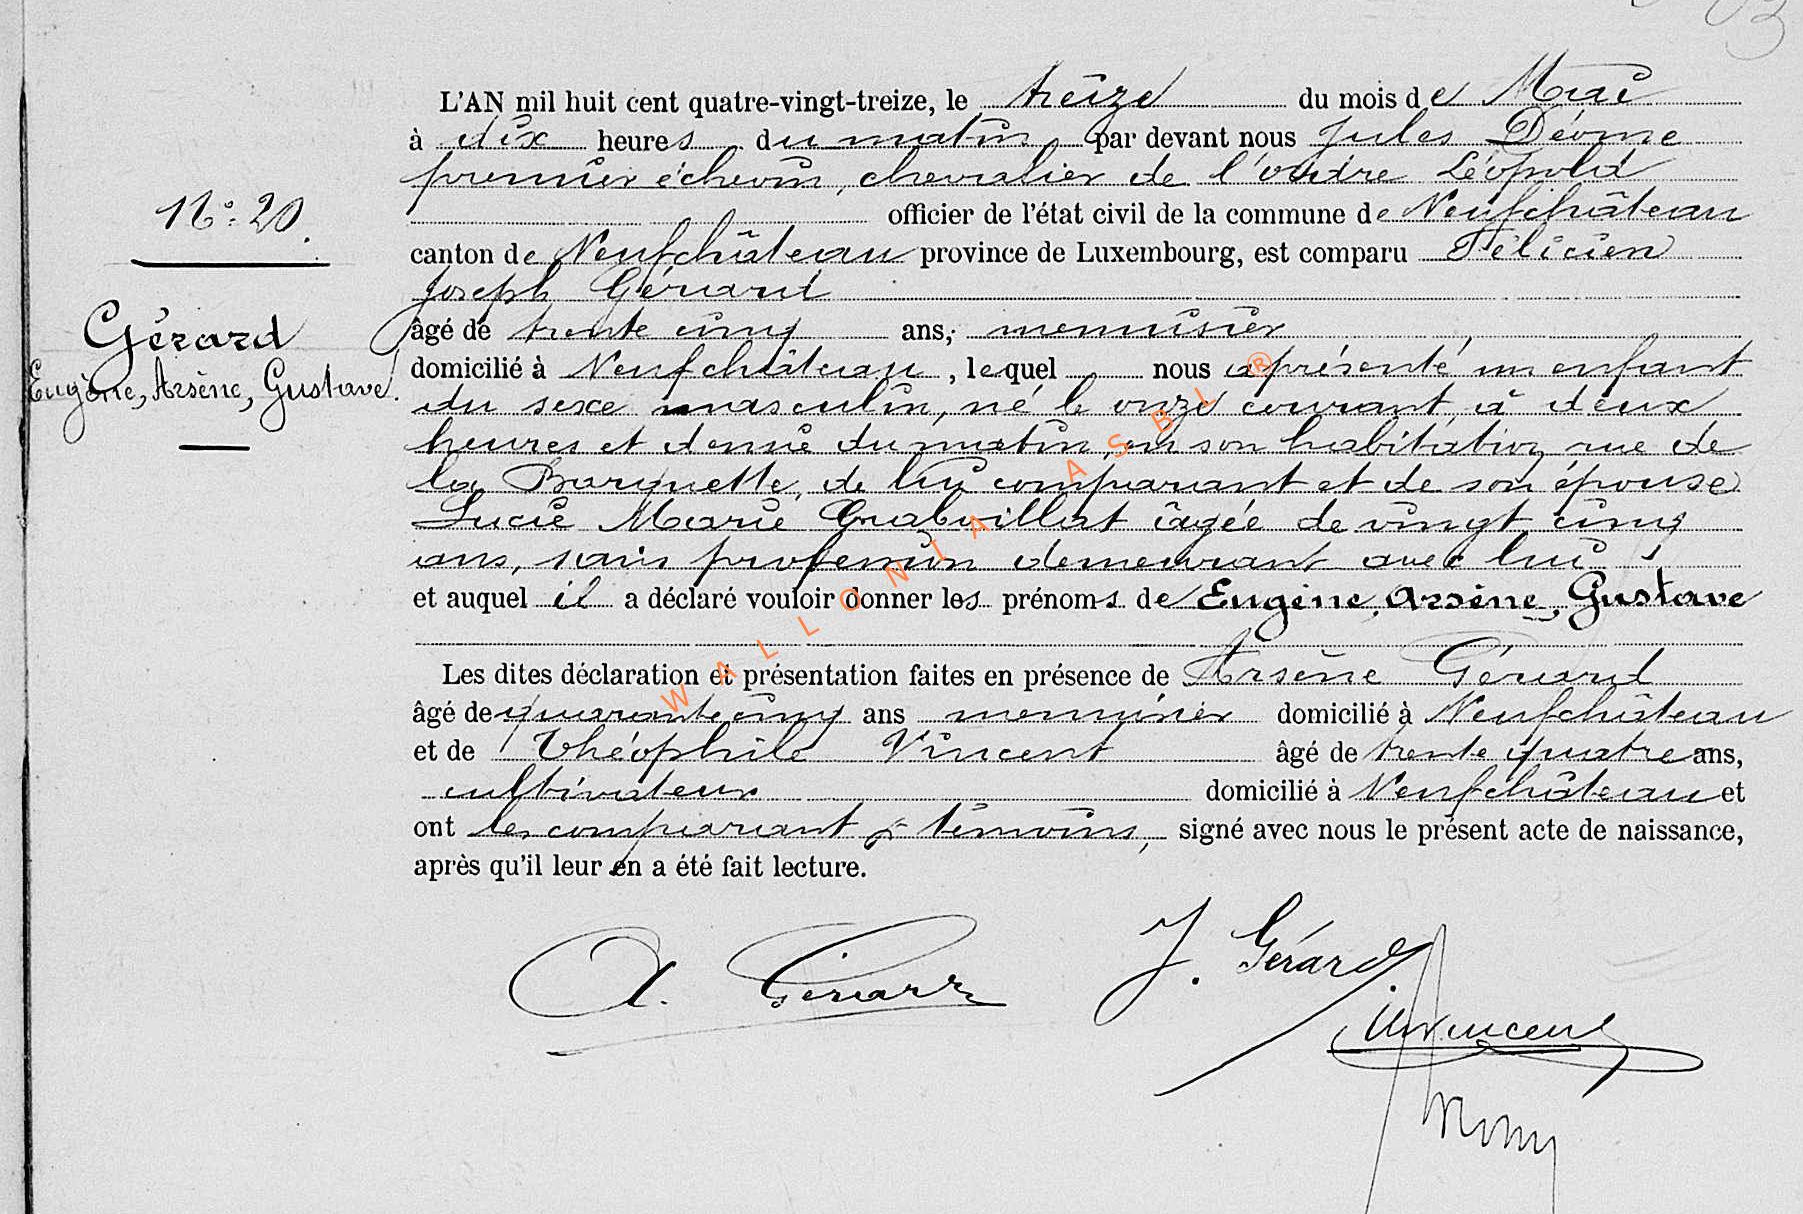 L'AN mil huit cent quatre-vingt-treize, le treize du mois de Mai
à dix heures du matin par devant nous Jules Déome
premier échevin, chevalier de l'ordre Léopold
officier de l'état civil de la commune de Neufchâteau
canton de Neufchâteau province de Luxembourg, est comparu Félicien
Joseph Gérard
âgé de trente cinq ans, menuisier
domicilié à Neufchâteau, lequel nous a présenté un enfant
du sexe masculin, né le onze courant, à deux
heures et demie du matin, en son habitation, rue de
la Barquette, de lui comparant et de son épouse
Lucie Marie âgée de vingt cinq
ans, sans profession demeurant avec lui
et auquel il a déclaré vouloir donner les prénoms de Eugène, Arsène, Gustave
Les dites déclaration et présentation faites en présence de Arsène Gérard
âgé de quarante cinq ans menuisier domicilié à Neufchâteau
et de Théophile Vincent âgé de trente quatre ans,
cultivateur domicilié à Neufchâteau et
ont les comparant & témoins, signé avec nous le présent acte de naissance,
après qu'il leur en a été fait lecture.
N° 20.
Gérard
Eugène, Arsène, Gustave.
A. Gérard
J. Gérard
Vincent
WALLONIA ASBL ®